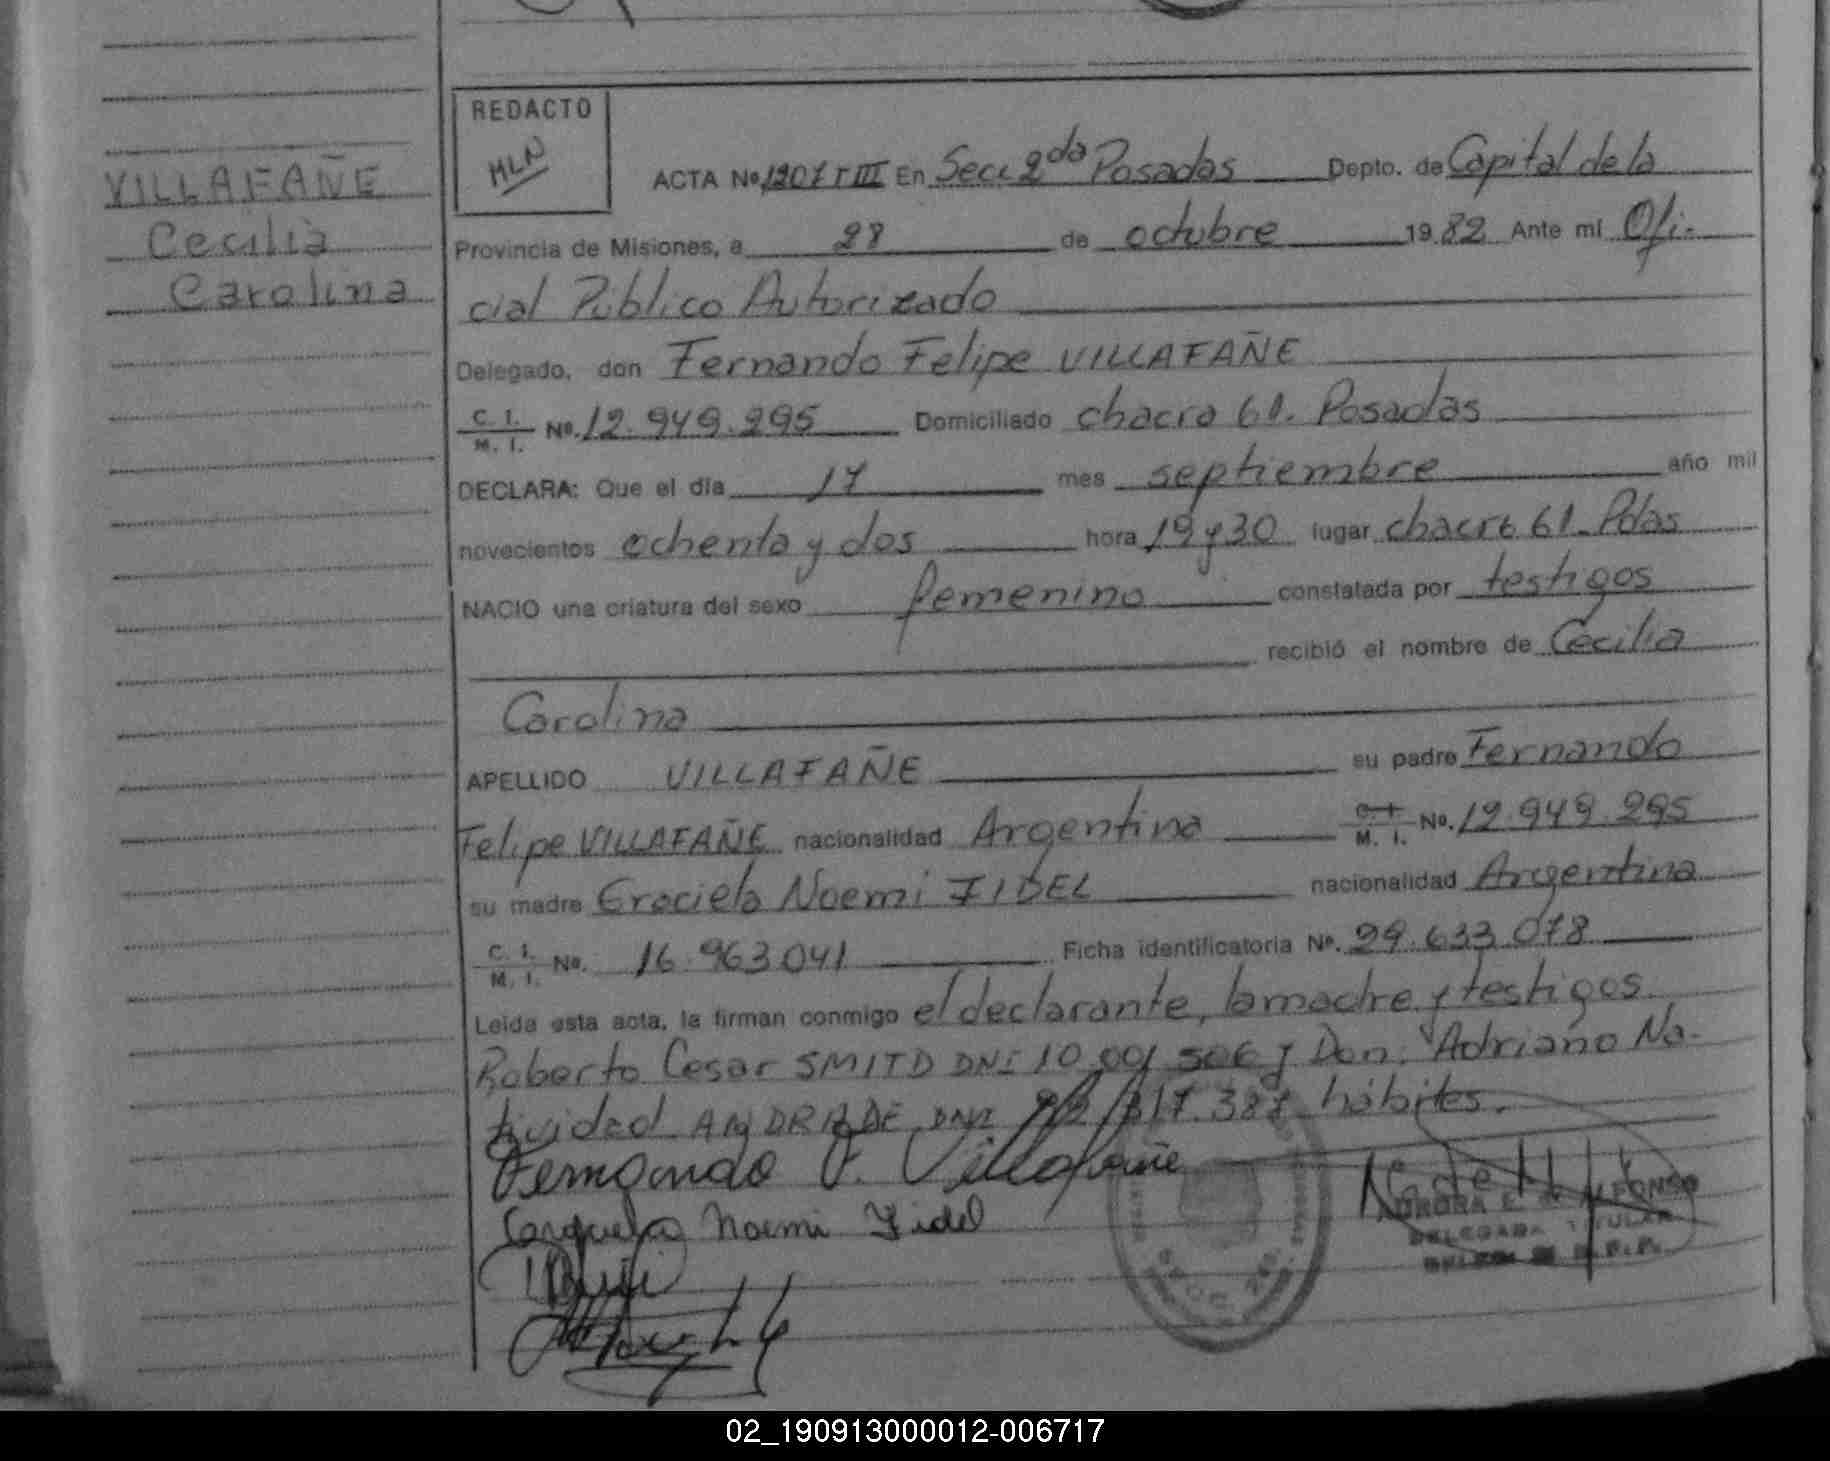 REDACTO
MLN
VILLAFAÑE
Cecilia
Carolina
ACTA Nº 1207 T III En Secc 2da Posadas Depto. de Capital de la
Provincia de Misiones, a 28 de octubre 1982 Ante mi Ofi-
cial Público Autorizado
Delegado, don Fernando Felipe VILLAFAÑE
C. I.
M. I. Nº. 12.949.295 Domiciliado chacra 61. Posadas
DECLARA: Que el día 17 mes septiembre año mil
novecientos ochenta y dos hora 19 y 30 lugar chacra 61. Pdas
NACIO una criatura del sexo femenino constatada por testigos
recibió el nombre de Cecilia
Carolina
APELLIDO VILLAFAÑE su padre Fernando
Felipe VILLAFAÑE nacionalidad Argentina C. I. M. I. Nº. 12.949.295
su madre Graciela Noemi FIDEL nacionalidad Argentina
C. I.
M. I. Nº. 16.963.041 Ficha identificatoria Nº. 29.633.078
Leída esta acta, la firman conmigo el declarante, la madre y testigos
Roberto Cesar SMITD DNI 10.001.506 y Don: Adriano Na-
tividad ANDRADE DNI 317.387 hábiles.
Fernando F. Villafañe
Noemi Fidel
AURORA E. ALFONSO
DELEGADA TITULAR
02_190913000012-006717